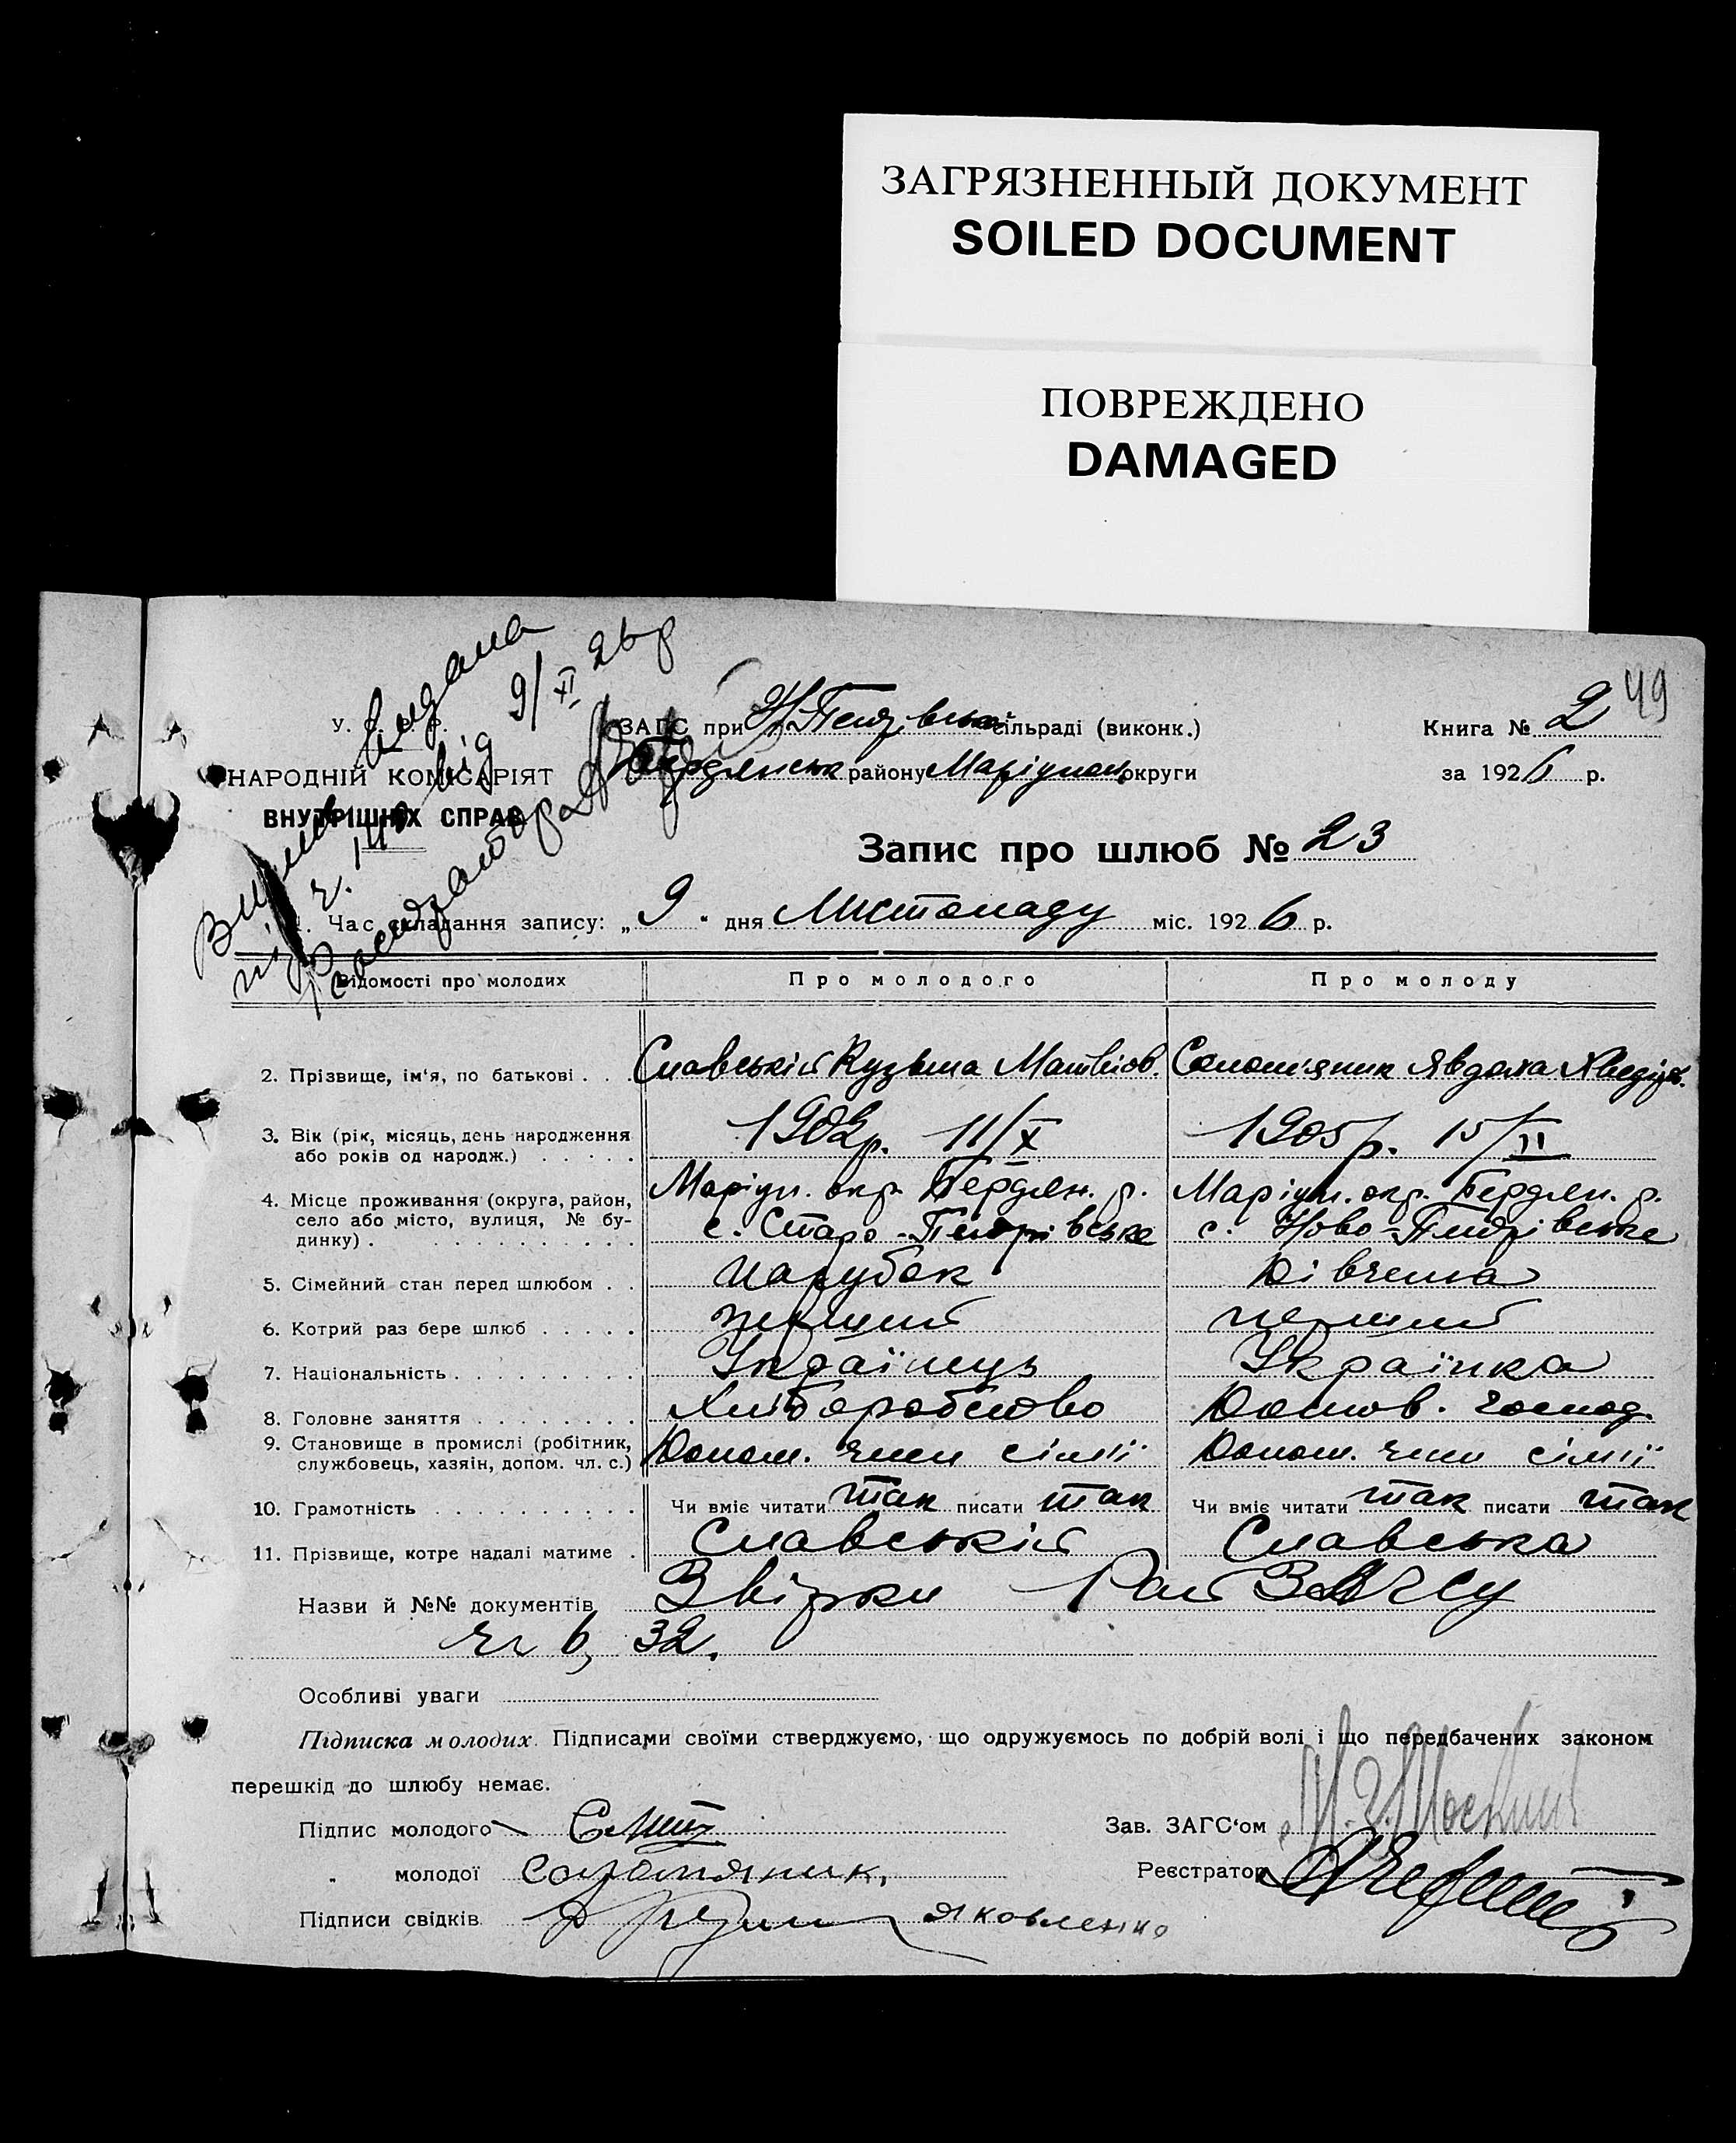 ЗАГРЯЗНЕННЫЙ ДОКУМЕНТ
SOILED DOCUMENT
ПОВРЕЖДЕНО
DAMAGED
49
видана
від 9/XI 26р
У. С. Р. Р.
НАРОДНІЙ КОМІСАРІЯТ
ВНУТРІШНІХ СПРАВ
ЗАГС при Н-Петрівські сільраді (виконк.)
Бердянськ району Маріупол округи
Книга № 2
за 1926 р.
Запис про шлюб № 23
1. Час складання запису: „9" дня Листопаду міс. 1926 р.
Відомості про молодих Про молодого Про молоду
2. Прізвище, ім'я, по батькові . . . Славський Кузьма Матвіов. Солом'яник Явдоха
3. Вік (рік, місяць, день народження або років од народж.) . . . . . 1902р. 11/X 1905р. 15/II
4. Місце проживання (округа, район, Маріуп. окр. Бердян. р. Маріуп. окр. Бердян. р.
село або місто, вулиця, № бу-динку) . . . с. Старо-Петрівське с. Ново-Петрівське
5. Сімейний стан перед шлюбом . . Парубок Дівчина
6. Котрий раз бере шлюб . . . . . перший перший
7. Національність . . . . . . . . . Українець Українка
8. Головне заняття . . . . . . . . Хліборобство Домов. господ.
9. Становище в промислі (робітник, службовець, хазяїн, допом. чл. с.) Допом. член сімії Допом. член сімії
10. Грамотність . . . . . . . . . . Чи вміє читати так писати так Чи вміє читати так писати так
11. Прізвище, котре надалі матиме . Славський Славська
Назви й №№ документів Звірки Рай ЗАГСу
чч 6, 32.
Особливі уваги
Підписка молодих. Підписами своїми стверджуємо, що одружуємось по добрій волі і що передбачених законом
перешкід до шлюбу немає.
Підпис молодого Зав. ЗАГС'ом
„ молодої соломяник, Реєстратор
Підписи свідків Яковленко